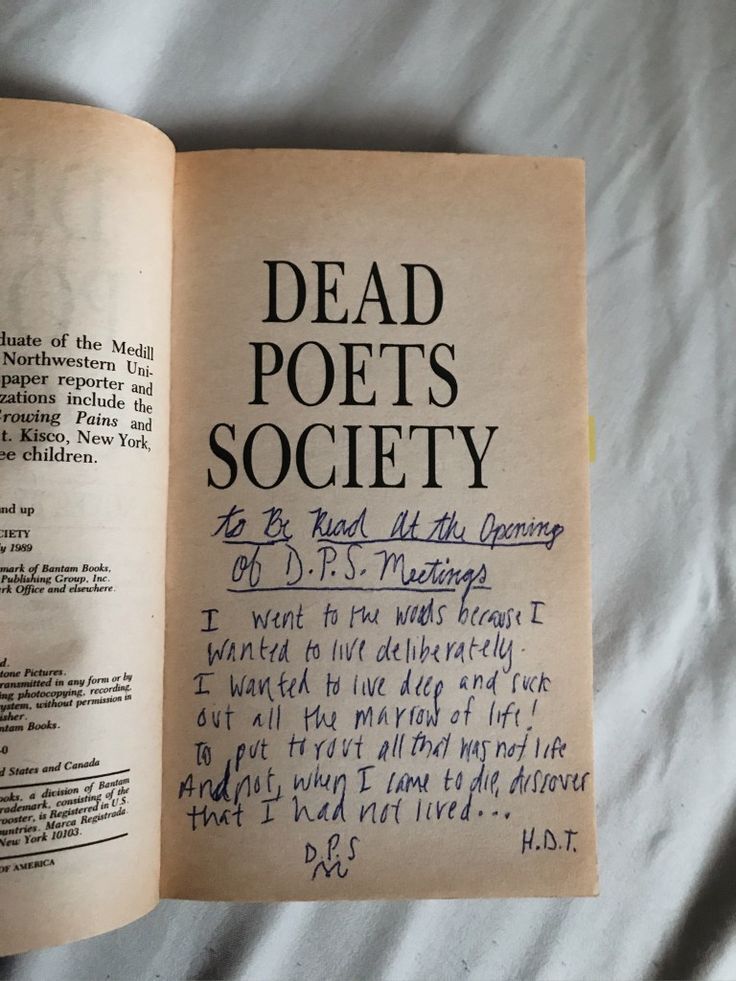 duate of the Medill
Northwestern Uni-
paper reporter and
zations include the
Growing Pains and
t. Kisco, New York,
ee children.
nd up
CIETY
y 1989
mark of Bantam Books,
Publishing Group, Inc.
rk Office and elsewhere.
d.
tone Pictures.
ransmitted in any form or by
ing photocopying, recording,
system, without permission in
isher.
ntam Books.
-0
d States and Canada
ooks, a division of Bantam
rademark, consisting of the
rooster, is Registered in U.S.
ountries. Marca Registrada.
New York 10103.
OF AMERICA
DEAD
POETS
SOCIETY
to Be Read At the Opening
of D.P.S. Meetings
I went to the woods because I
wanted to live deliberately.
I wanted to live deep and suck
out all the marrow of life!
To put to rout all that was not life
And not, when I came to die, discover
that I had not lived...
D.P.S
H.D.T.